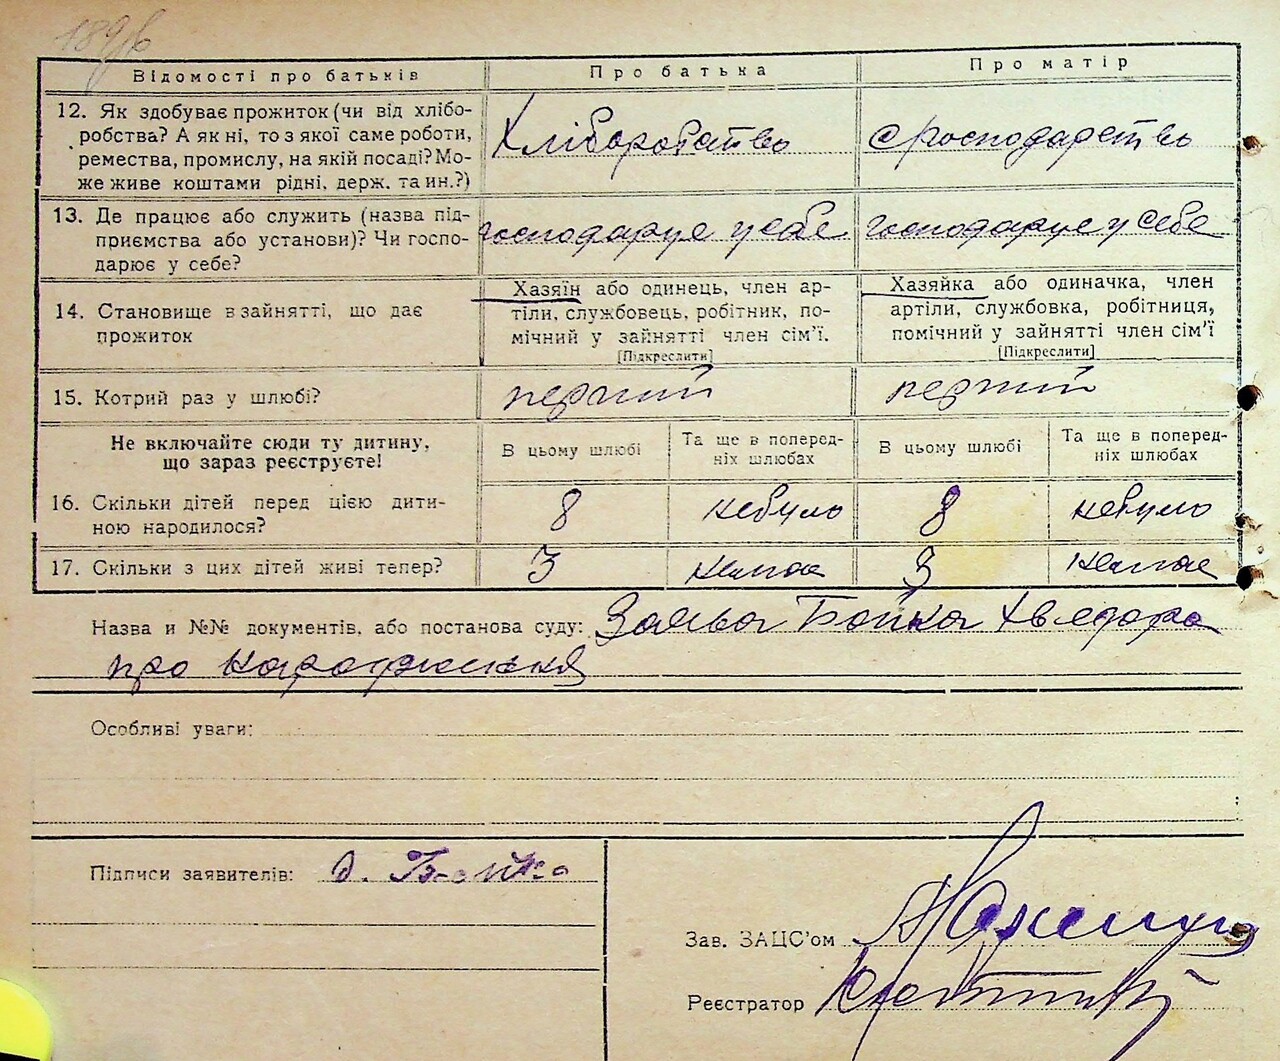 Відомості про батьків Про батька Про матір
12. Як здобуває прожиток (чи від хлібо- Хліборобство Господарство
робства? А як ні, то з якої саме роботи,
ремества, промислу, на якій посаді? Мо-
же живе коштами рідні, держ. та ин.?)
13. Де працює або служить (назва під- господарує у себе господарує у себе
приємства або установи)? Чи госпо-
дарює у себе?
14. Становище в зайнятті, що дає
прожиток
Хазяїн або одинець, член ар-
тіли, службовець, робітник, по-
мічний у зайнятті член сім'ї.
[Підкреслити]
Хазяйка або одиначка, член
артіли, службовка, робітниця,
помічний у зайнятті член сім'ї
[Підкреслити]
15. Котрий раз у шлюбі? перший перший
Не включайте сюди ту дитину,
що зараз реєструєте!
В цьому шлюбі
Та ще в поперед-
ніх шлюбах
В цьому шлюбі
Та ще в поперед-
ніх шлюбах
16. Скільки дітей перед цією дити- 8 небуло 8 небуло
ною народилося?
17. Скільки з цих дітей живі тепер? 3 немає 3 немає
Назва и №№ документів, або постанова суду: Заява Бойка Хведора
про народження
Особливі уваги:
Підписи заявителів: Бойко
Зав. ЗАЦС'ом
Реєстратор